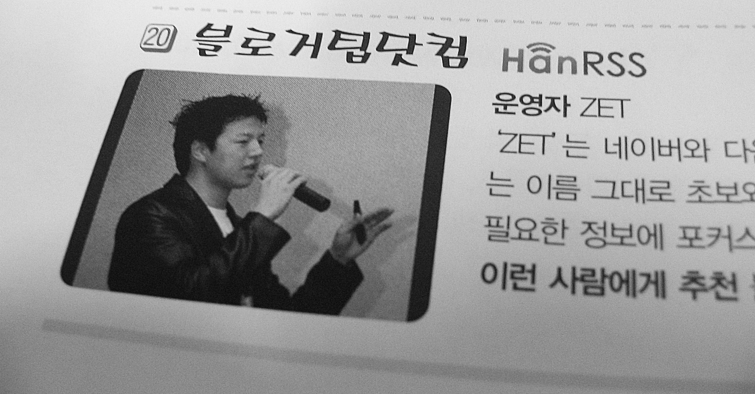 20 블로거팁닷컴 HanRSS
운영자 ZET
'ZET'는 네이버와
는 이름 그대로 초보와
필요한 정보에 포커스
이런 사람에게 추천